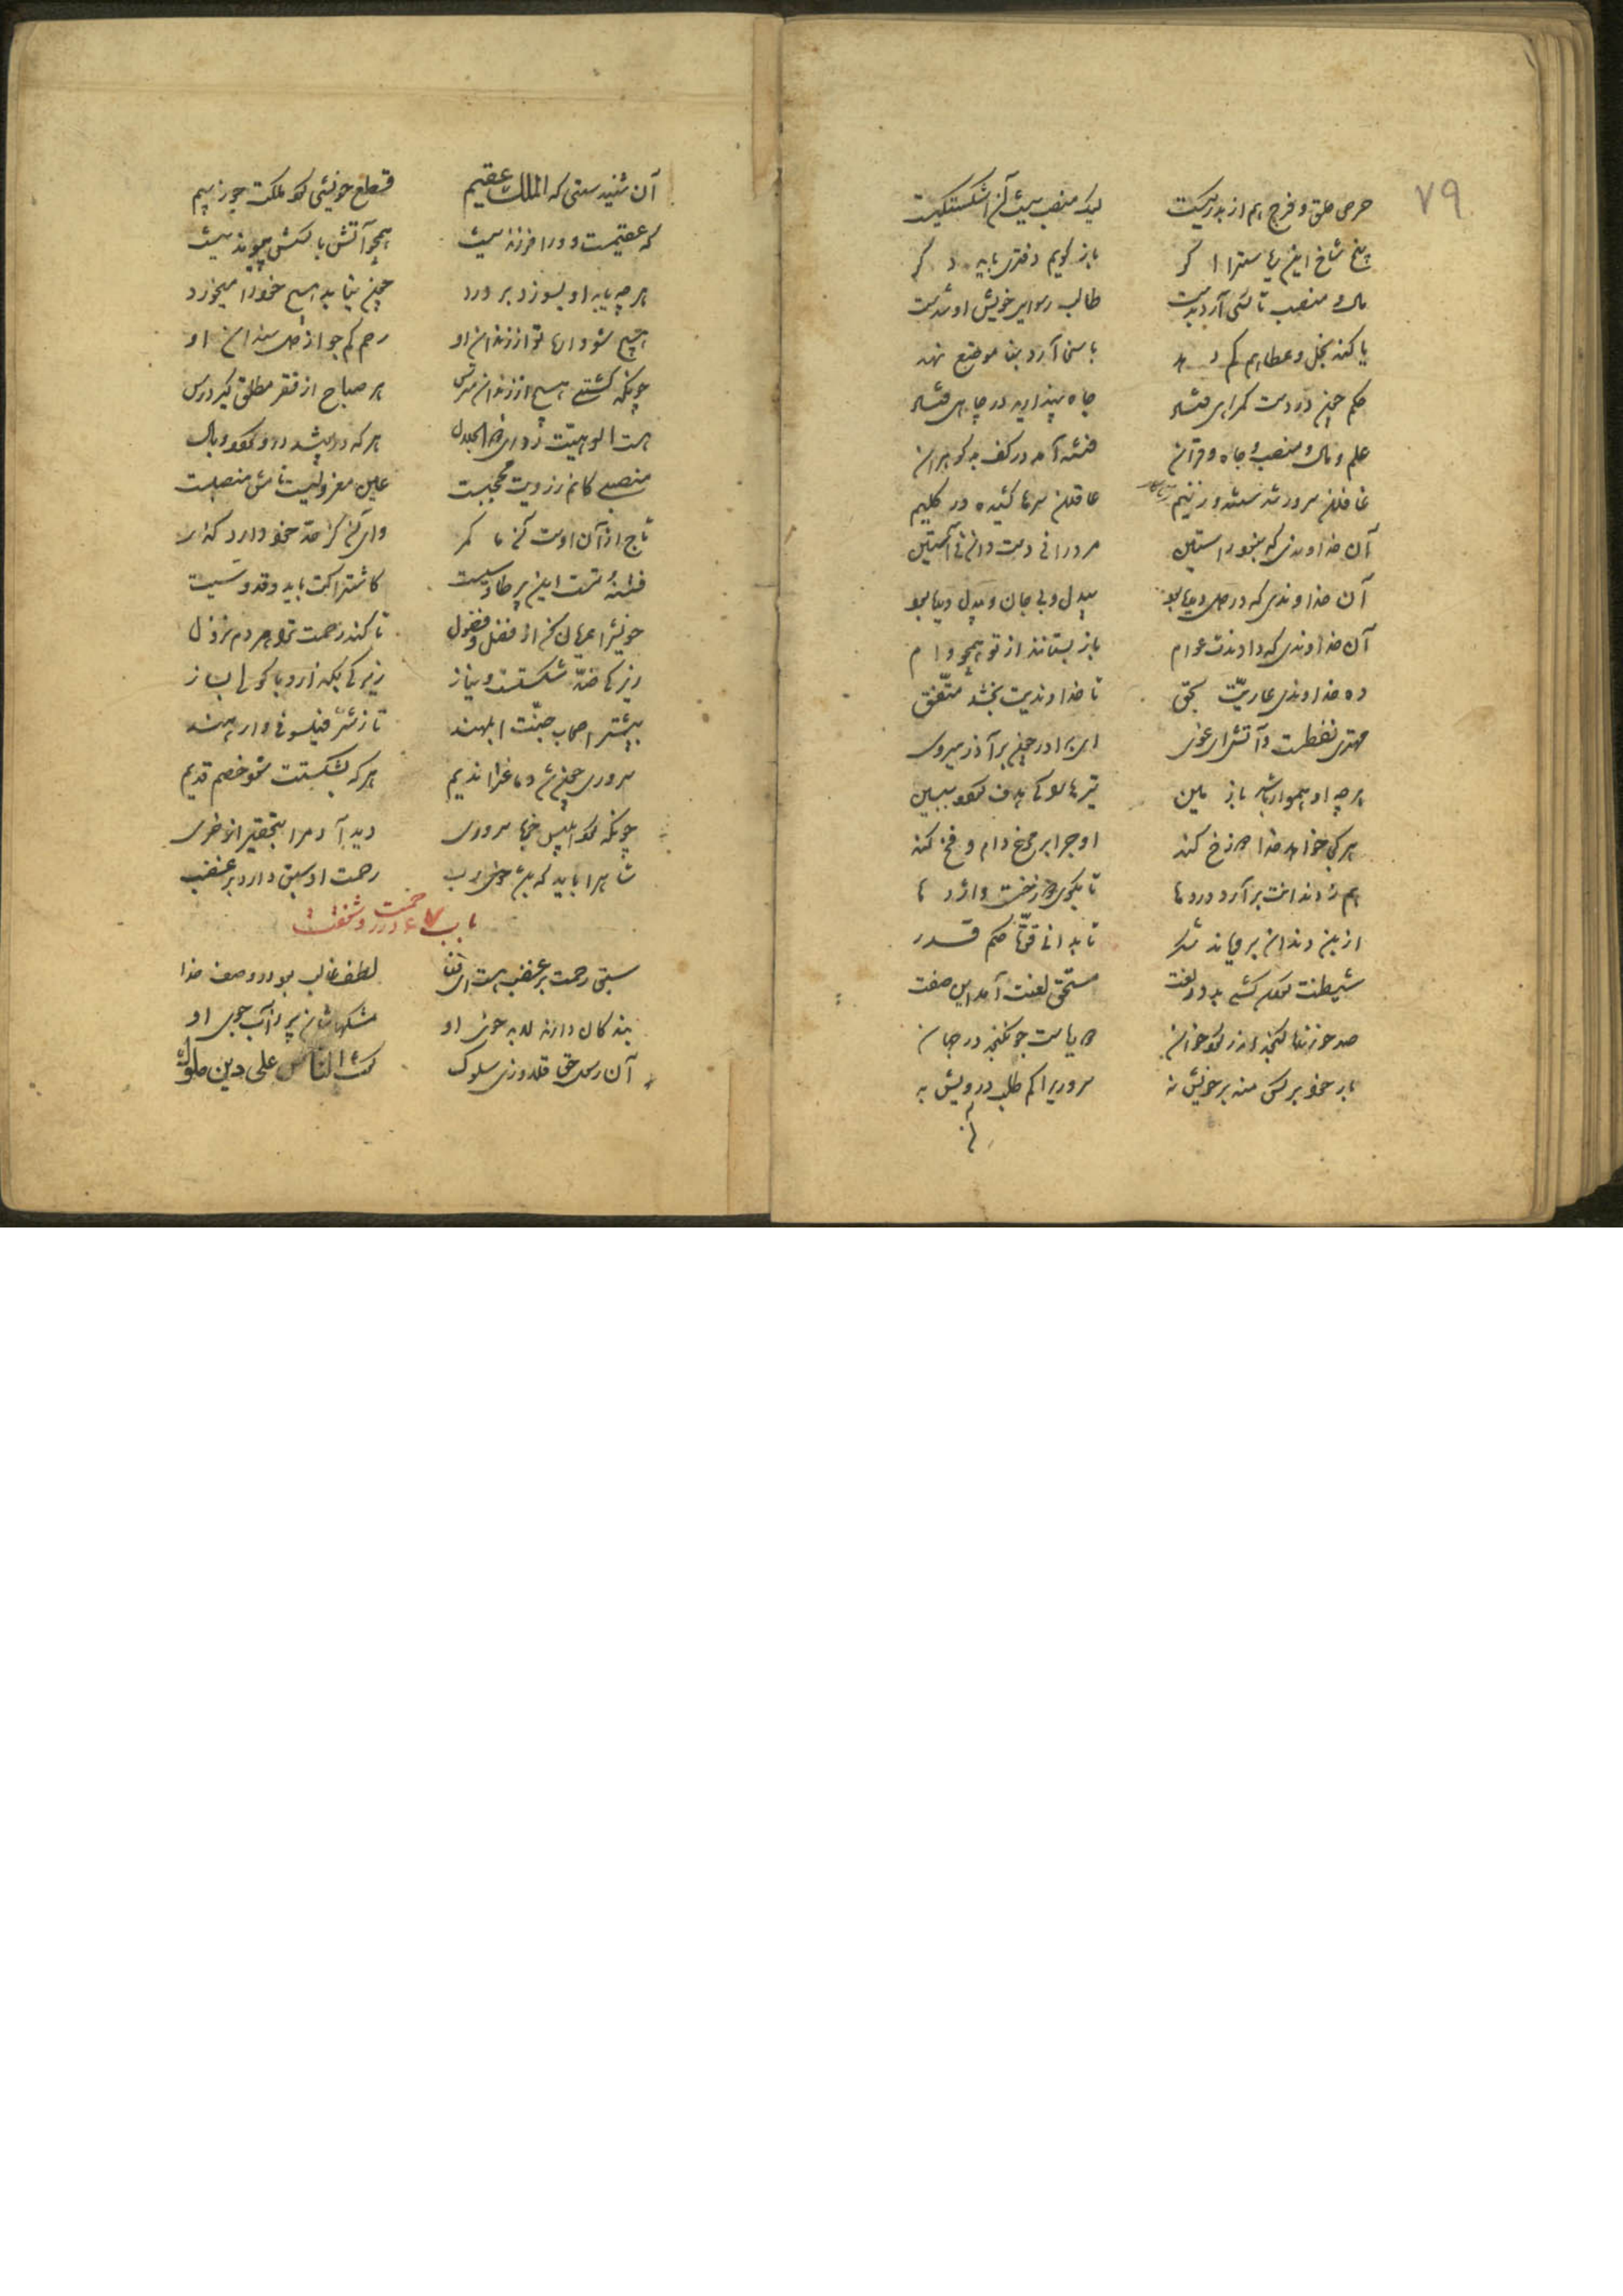 ۷۹
حرص حلق و فرج هم از بدرگیست لیک منصب نیست آن اشکستگیست
بیخ و شاخ این ریاست را اگر باز گویم دفتری باید دگر
مال و منصب ناکسی آرد بدست طالب رسوایی خویش او شدست
یا کند بخل و عطاها کم دهد یا سخا آرد بنا موضع نهد
حکم چون در دست گمراهی فتاد جاه پندارید در چاهی فتاد
علم و مال و منصب و جاه و قرآن فتنه آمد در کف بدگوهران
غافلان سرور شدستند و ز بیم عاقلان سرها کشیده در گلیم
آن خداوندی که نبود راستین مر ورا نی دست دان نی آستین
آن خداوندی که دزدیده بود بیدل و بی جان و بی دیده بود
آن خداوندی که دادندت عوام باز بستانند از تو همچو وام
ده خداوندی عاریت بحق تا خداوندیت بخشد متفق
مهتری نفطست و آتش ای غوی ای برادر چون بر آذر میروی
هر چه او هموار باشد با زمین تیرها را کی هدف گردد ببین
او چرا بر مرغ دام و فخ کند
تا بگوی
هم ز دندانت برآرد دردها
از بن دندان برهاند شکر تا بدانی قوت حکم قدر
شیطنت گردن کشی بد در لغت مستحق لعنت آمد این صفت
صد خورنده گنجد اندر گرد خوان دو ریاست جو نگنجد در جهان
بار خود بر کس منه بر خویش نه سروری را کم طلب درویش به
آن
آن شنیدستی که الملک عقیم قطع خویشی کرد ملکت جو ز بیم
که عقیمست و ورا فرزند نیست همچو آتش با کسش پیوند نیست
هر چه یابد او بسوزد بر درد چون نیابد هیچ خود را میخورد
هیچ شو وارهی تو از دندان او رحم کم جو از دل سندان او
چونکه گشتی هیچ از سندان مترس هر صباح از فقر مطلق گیر درس
هست الوهیت ردای ذو الجلال هر که در پوشد برو گردد وبال
منصبی کانم ز رؤیت محجبست عین معزولیست نامش منصبست
تاج از آن اوست آن ما کمر وای آن کز حد خود دارد گذر
فتنه تست این پر طاوسیت کاشتراکت باید و قدوسیت
خویش را عریان کن از فضل و فضول تا کند رحمت بتو هر دم نزول
زیرکی ضد شکستست و نیاز زیرکی بگذار و با گولی بساز
بیشتر اصحاب جنت ابلهند تا ز شر فیلسوفی وارهند
سروری چون شد دماغت را ندیم هر که بشکستت شود خصم قدیم
چونکه کرد ابلیس خو با سروری دید آدم را بتحقیر از خری
رحمت او سبق دارد بر غضب
باب ۷ع در رحمت و شفقت
سبق رحمت بر غضب هست ای فتا لطف غالب بود در وصف خدا
بندگان دارند لابد خوی او مشکهاشان پر ز آب جوی او
آن رسول حق قلاوز سلوک گفت الناس علی دین ملوک